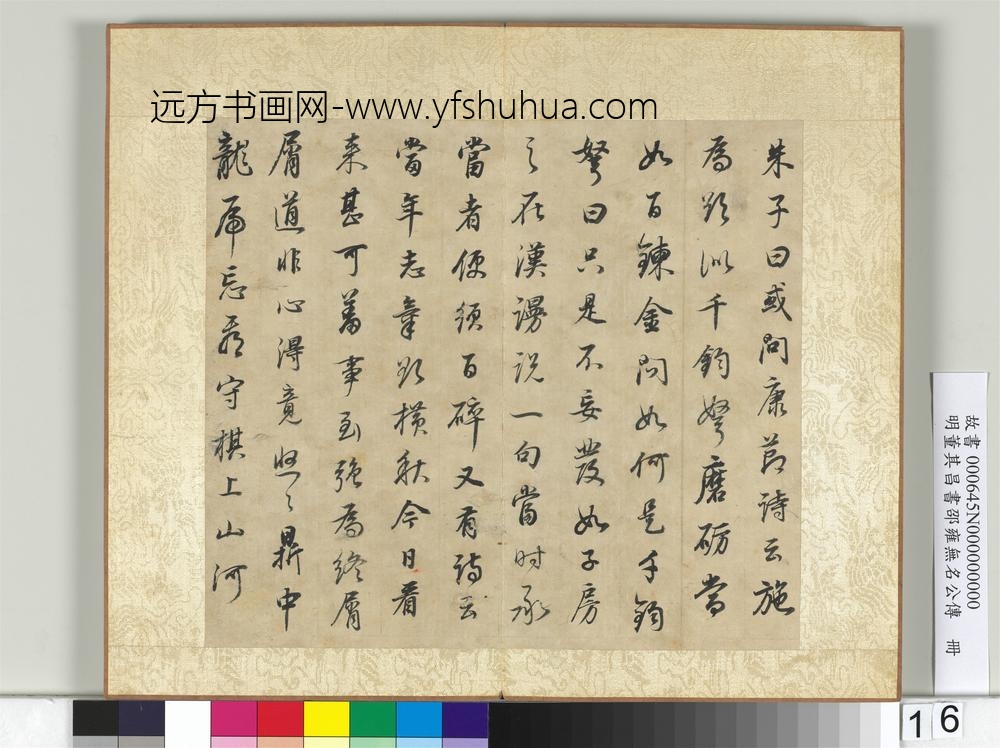 远方书画网-www.yfshuhua.com
朱子曰或問康節詩云施
為欲似千鈞弩磨礪當
如百鍊金問如何是千鈞
弩曰只是不妄發如子房
之在漢謾説一句當时承
當者便須百碎又有詩云
當年志氣欲橫秋今日看
来甚可羞事到強為終屑
屑道非心得竟悠〻鼎中
龍虎忘看守棋上山河
故書 000645N000000000
明董其昌書邵雍無名公傳 冊
16